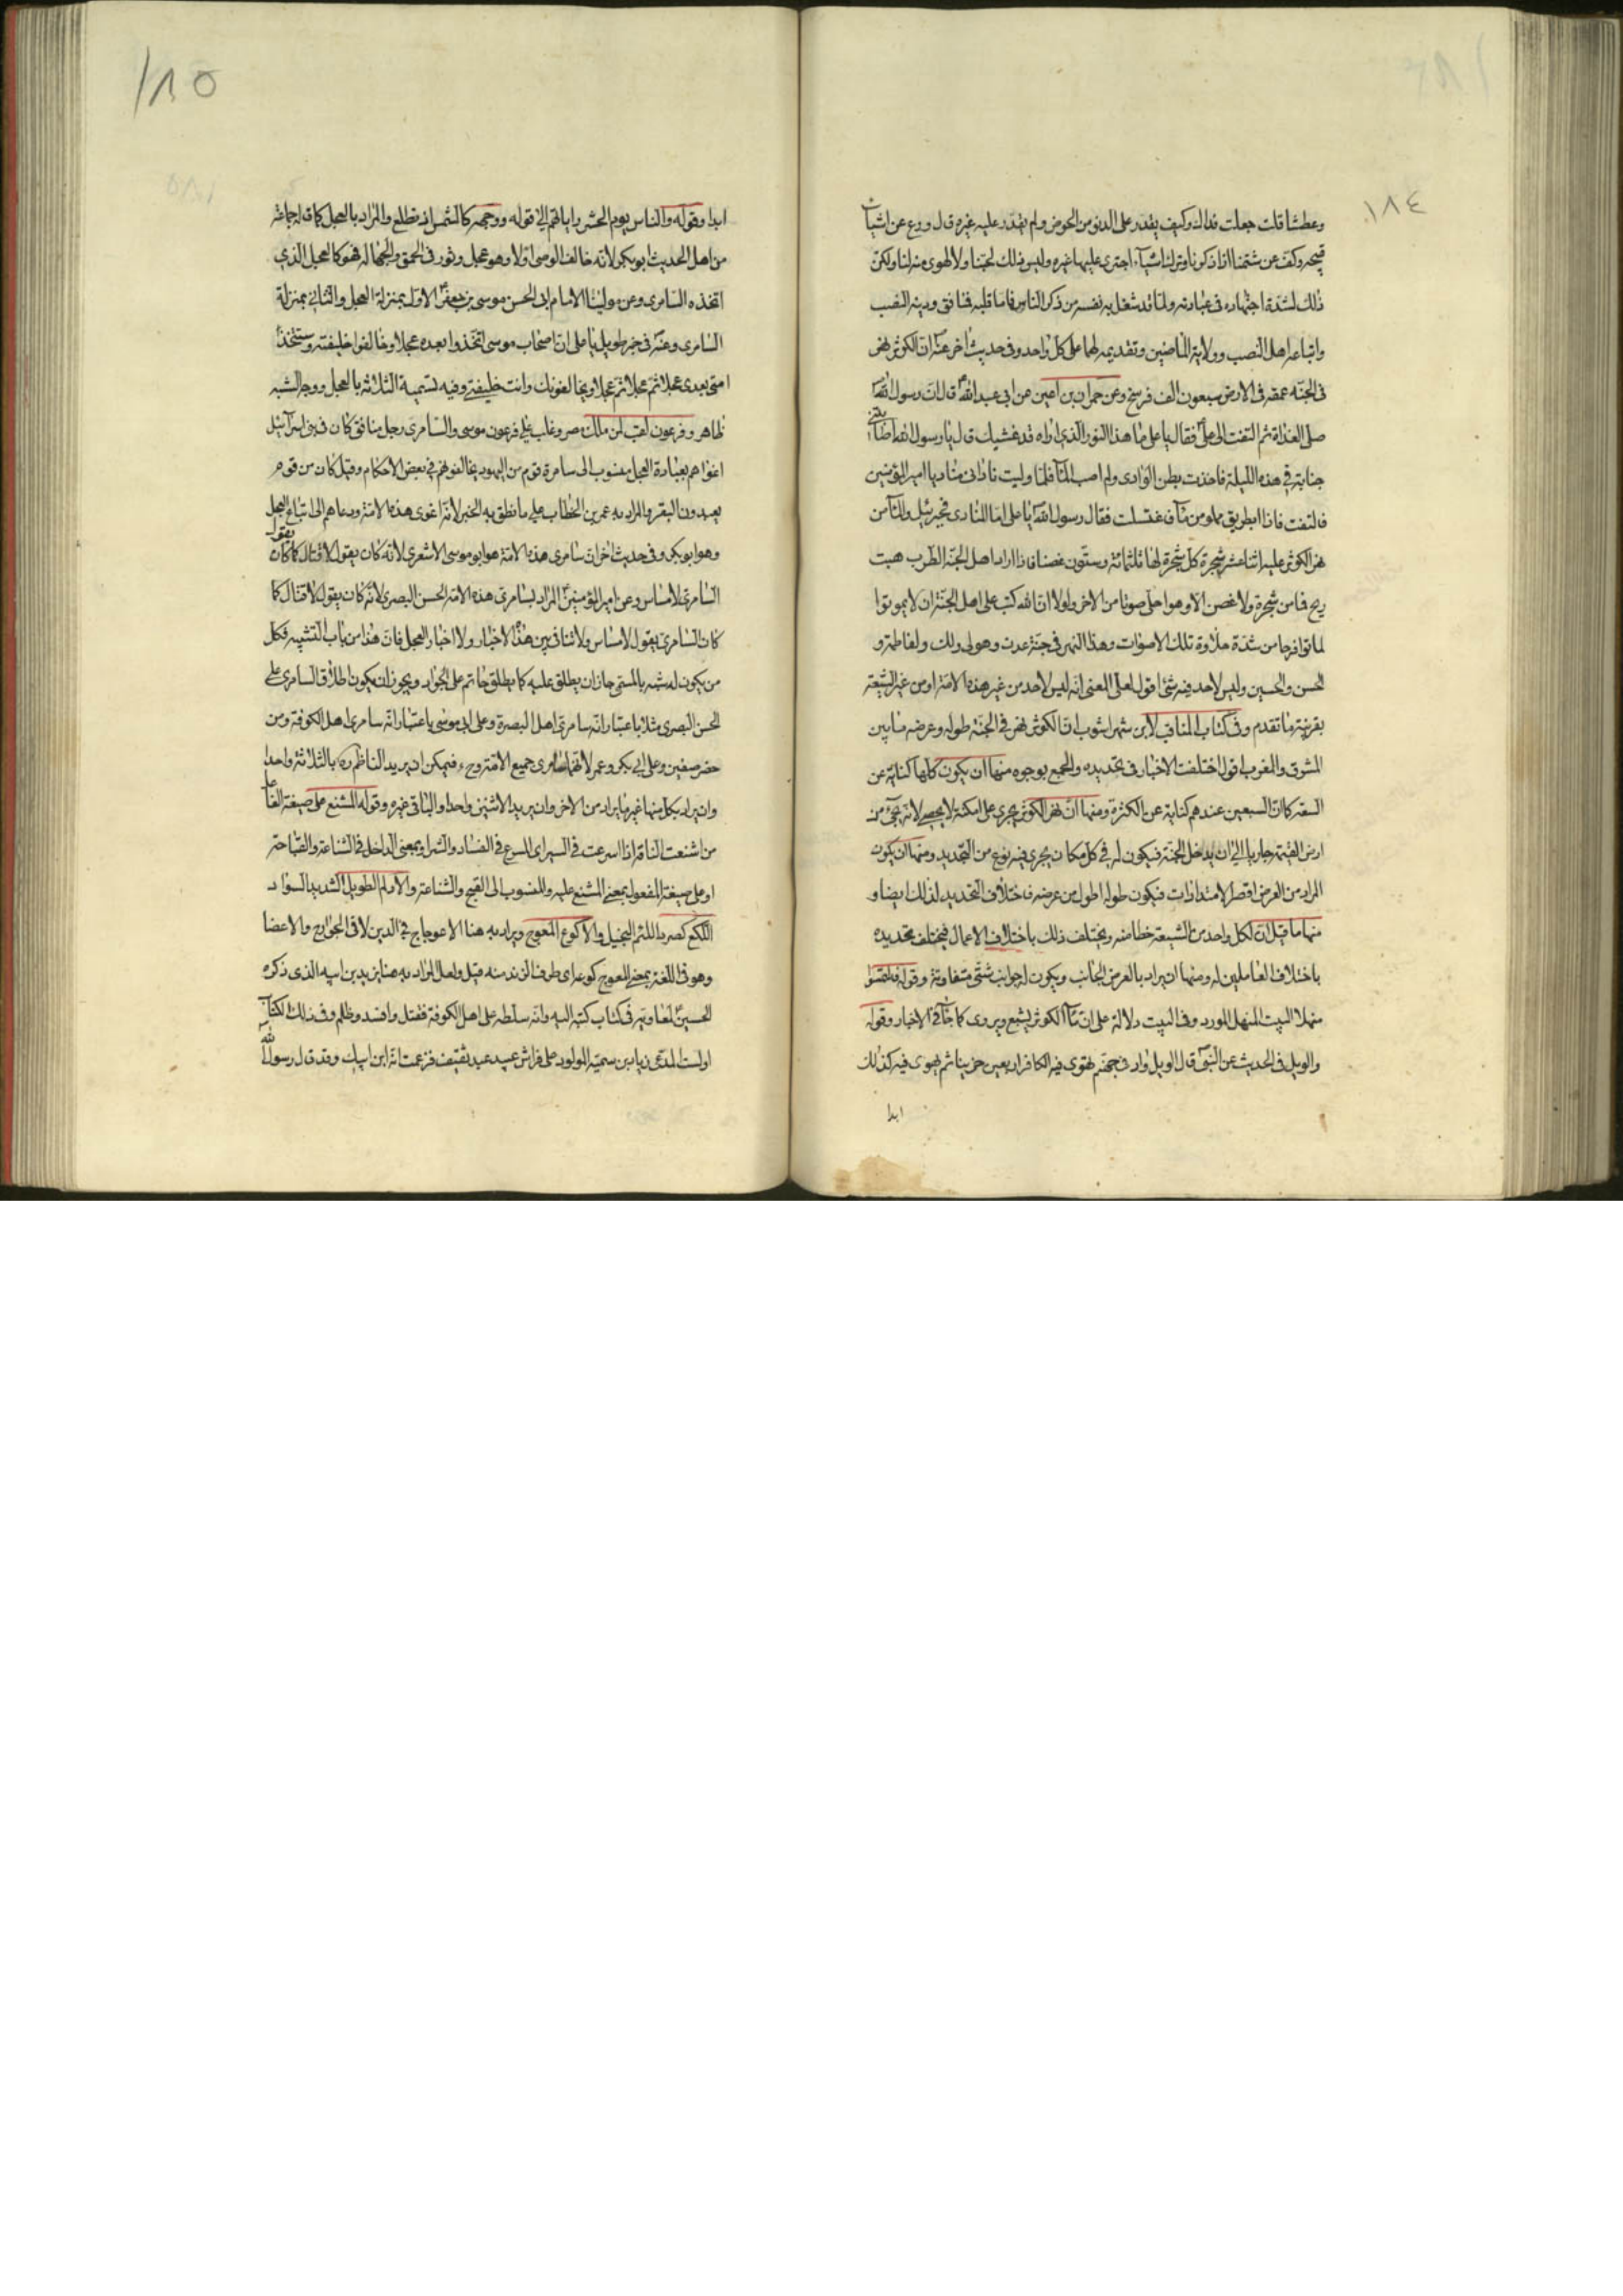 ١٨٤
وعطشا قلت جعلت فداك وكيف يقدر على الدنو من الحوض ولم يقدر عليه غيره قال ورع عن اشياء
قبيحه وكف عن شتمنا اذا ذكرنا وترك اشياء اجترى عليها غيره وليس ذلك لحبنا ولا لهوى منه لنا ولكن
ذلك لشدة اجتهاده في عبادته ولما قد شغل به نفسه من ذكر الناس فاما قلبه فنافق ودينه النصب
واتباعه اهل النصب وولاية الماضين وتقديمه لهما على كل واحد وفي حديث اخر عنه ان الكوثر نهر
في الجنة عمقه في الارض سبعون الف فرسخ وعن حمران بن اعين عن ابي عبد الله قال ان رسول الله
صلى الغداة ثم التفت الى علي فقال يا على ما هذا النور الذي اراه قد غشيك قال يا رسول الله اصابتني
جنابة في هذه الليلة فاخذت بطن الوادى ولم اصب الماء فلما وليت ناداني مناد يا امير المؤمنين
فالتفت فاذا ابريق مملو من ماء فاغتسلت فقال رسول الله يا على اما المنادى فجبرئيل والماء من
نهر الكوثر عليه اثنا عشر شجرة كل شجرة لها ثلثمائة وستون غصنا فاذا اراد اهل الجنة الطرب هبت
ريح فما من شجرة ولا غصن الا وهو احلى صوتا من الاخر ولولا ان الله كتب على اهل الجنة ان لا يموتوا
لماتوا فرحا من شدة حلاوة تلك الاصوات وهذا النهر في جنة عدن وهو لي ولك ولفاطمة و
الحسن والحسين وليس لاحد فيه شئ اقول لعل المعنى انه ليس لاحد من غير هذه الامة او من غير الشيعة
بقرينة ما تقدم وفي كتاب المناقب لابن شهراشوب ان الكوثر نهر في الجنة طوله وعرضه ما بين
المشرق والمغرب اقول اختلفت الاخبار في تحديده والجمع بوجوه منها ان يكون كلها كناية عن
السعة كما ان السبعين عندهم كناية عن الكثرة ومنها ان نهر الكوثر يجرى على امكنة لا يحصى لانه يجئ من
ارض القيمة جاريا الى ان يدخل الجنة فيكون له في كل مكان يجرى فيه نوع من التحديد ومنها ان يكون
المراد من العرض اقصر الامتدادات فيكون طوله اطول من عرضه فاختلاف التحديد لذلك ايضا و
منها ما قيل ان لكل واحد من الشيعة خطا منه ويختلف ذلك باختلاف الاعمال فيختلف تحديده
باختلاف العاملين له ومنها ان يراد بالعرض الجانب ويكون له جوانب شتى متفاوتة وقوله فالتمسوا
منهلا البيت المنهل المورد وفي البيت دلالة على ان ماء الكوثر يشبع ويروى كما جاء في الاخبار وقوله
والويل في الحديث عن النبي قال الويل واد في جهنم يهوى فيه الكافر اربعين خريفا ثم يهوى فيه كذلك
ابدا
١٨٥
ابدا وقوله والناس يوم الحشر راياتهم الى قوله ووجهه كالشمس اذ تطلع والمراد بالعجل كما قاله جماعة
من اهل الحديث ابو بكر لانه خالف الوصى اولا وهو عجل وثور في الحمق والجهالة فهو كالعجل الذي
اتخذه السامرى وعن مولينا الامام ابى الحسن موسى بن جعفر الاول بمنزلة العجل والثاني بمنزلة
السامرى وعنه في خبر طويل يا على ان اصحاب موسى اتخذوا بعده عجلا وخالفوا خليفته وستتخذ
امتى بعدى عجلا ثم عجلا ثم عجلا ويخالفونك وانت خليفتي وفيه تسمية الثلاثة بالعجل ووجه الشبه
ظاهر وفرعون لقب لمن ملك مصر وغلب على فرعون موسى والسامرى رجل منافق كان في بنى اسرآئيل
اغواهم بعبادة العجل منسوب الى سامرة قوم من اليهود يخالفونهم في بعض الاحكام وقيل كان من قوم
يعبدون البقر والمراد به عمر بن الخطاب على ما نطق به الخبر لانه اغوى هذه الامة ودعاهم الى اتباع العجل
وهو ابو بكر وفي حديث اخر ان سامرى هذه الامة هو ابو موسى الاشعرى لانه كان يقول لا قتال كما كان يقول
السامرى لا مساس وعن امير المؤمنين المراد بسامرى هذه الامة الحسن البصرى لانه كان يقول لا قتال كما
كان السامرى يقول لا مساس ولا تنافي بين هذه الاخبار ولا اخبار العجل فان هذا من باب التشبيه فكل
من يكون له شبه بالمسمى جاز ان يطلق عليه كما يطلق حاتم على الجواد ويجوز ان يكون اطلاق السامرى على
الحسن البصرى مثلا باعتبار انه سامرى اهل البصرة وعلى ابى موسى باعتبار انه سامرى اهل الكوفة ومن
حضر صفين وعلى ابي بكر وعمر لانهما سامرى جميع الامة وح فيمكن ان يريد الناظم ره بالثلاثة واحدا
وان يراد بكل منها غير ما يراد من الاخر وان يريد الاثنين واحدا والباقي غيره وقوله المشنع على صيغة الفاعل
من اشنعت الناقة اذا اسرعت في السير اى المسرع في الفساد والشر او بمعنى الداخل في الشناعة والقباحة
او على صيغة المفعول بمعنى المشنع عليه والمنسوب الى القبح والشناعة والادلم الطويل الشديد السواد
اللكع كصرد اللئيم البخيل والاكوع المعوج ويراد به هنا الاعوجاج في الدين لا في الجوارح والاعضا
وهو في اللغة بمعنى المعوج كوعه اى طرف الزند منه قيل ولعل المراد به هنا يزيد بن ابيه الذى ذكره
الحسين لمعاوية في كتاب كتبه اليه وانه سلطه على اهل الكوفة فقتل وافسد وظلم وفي ذلك الكتاب
اولست المدعى زياد بن سمية المولود على فراش عبيد عبد ثقيف فزعمت انه ابن ابيك وقد قال رسول الله